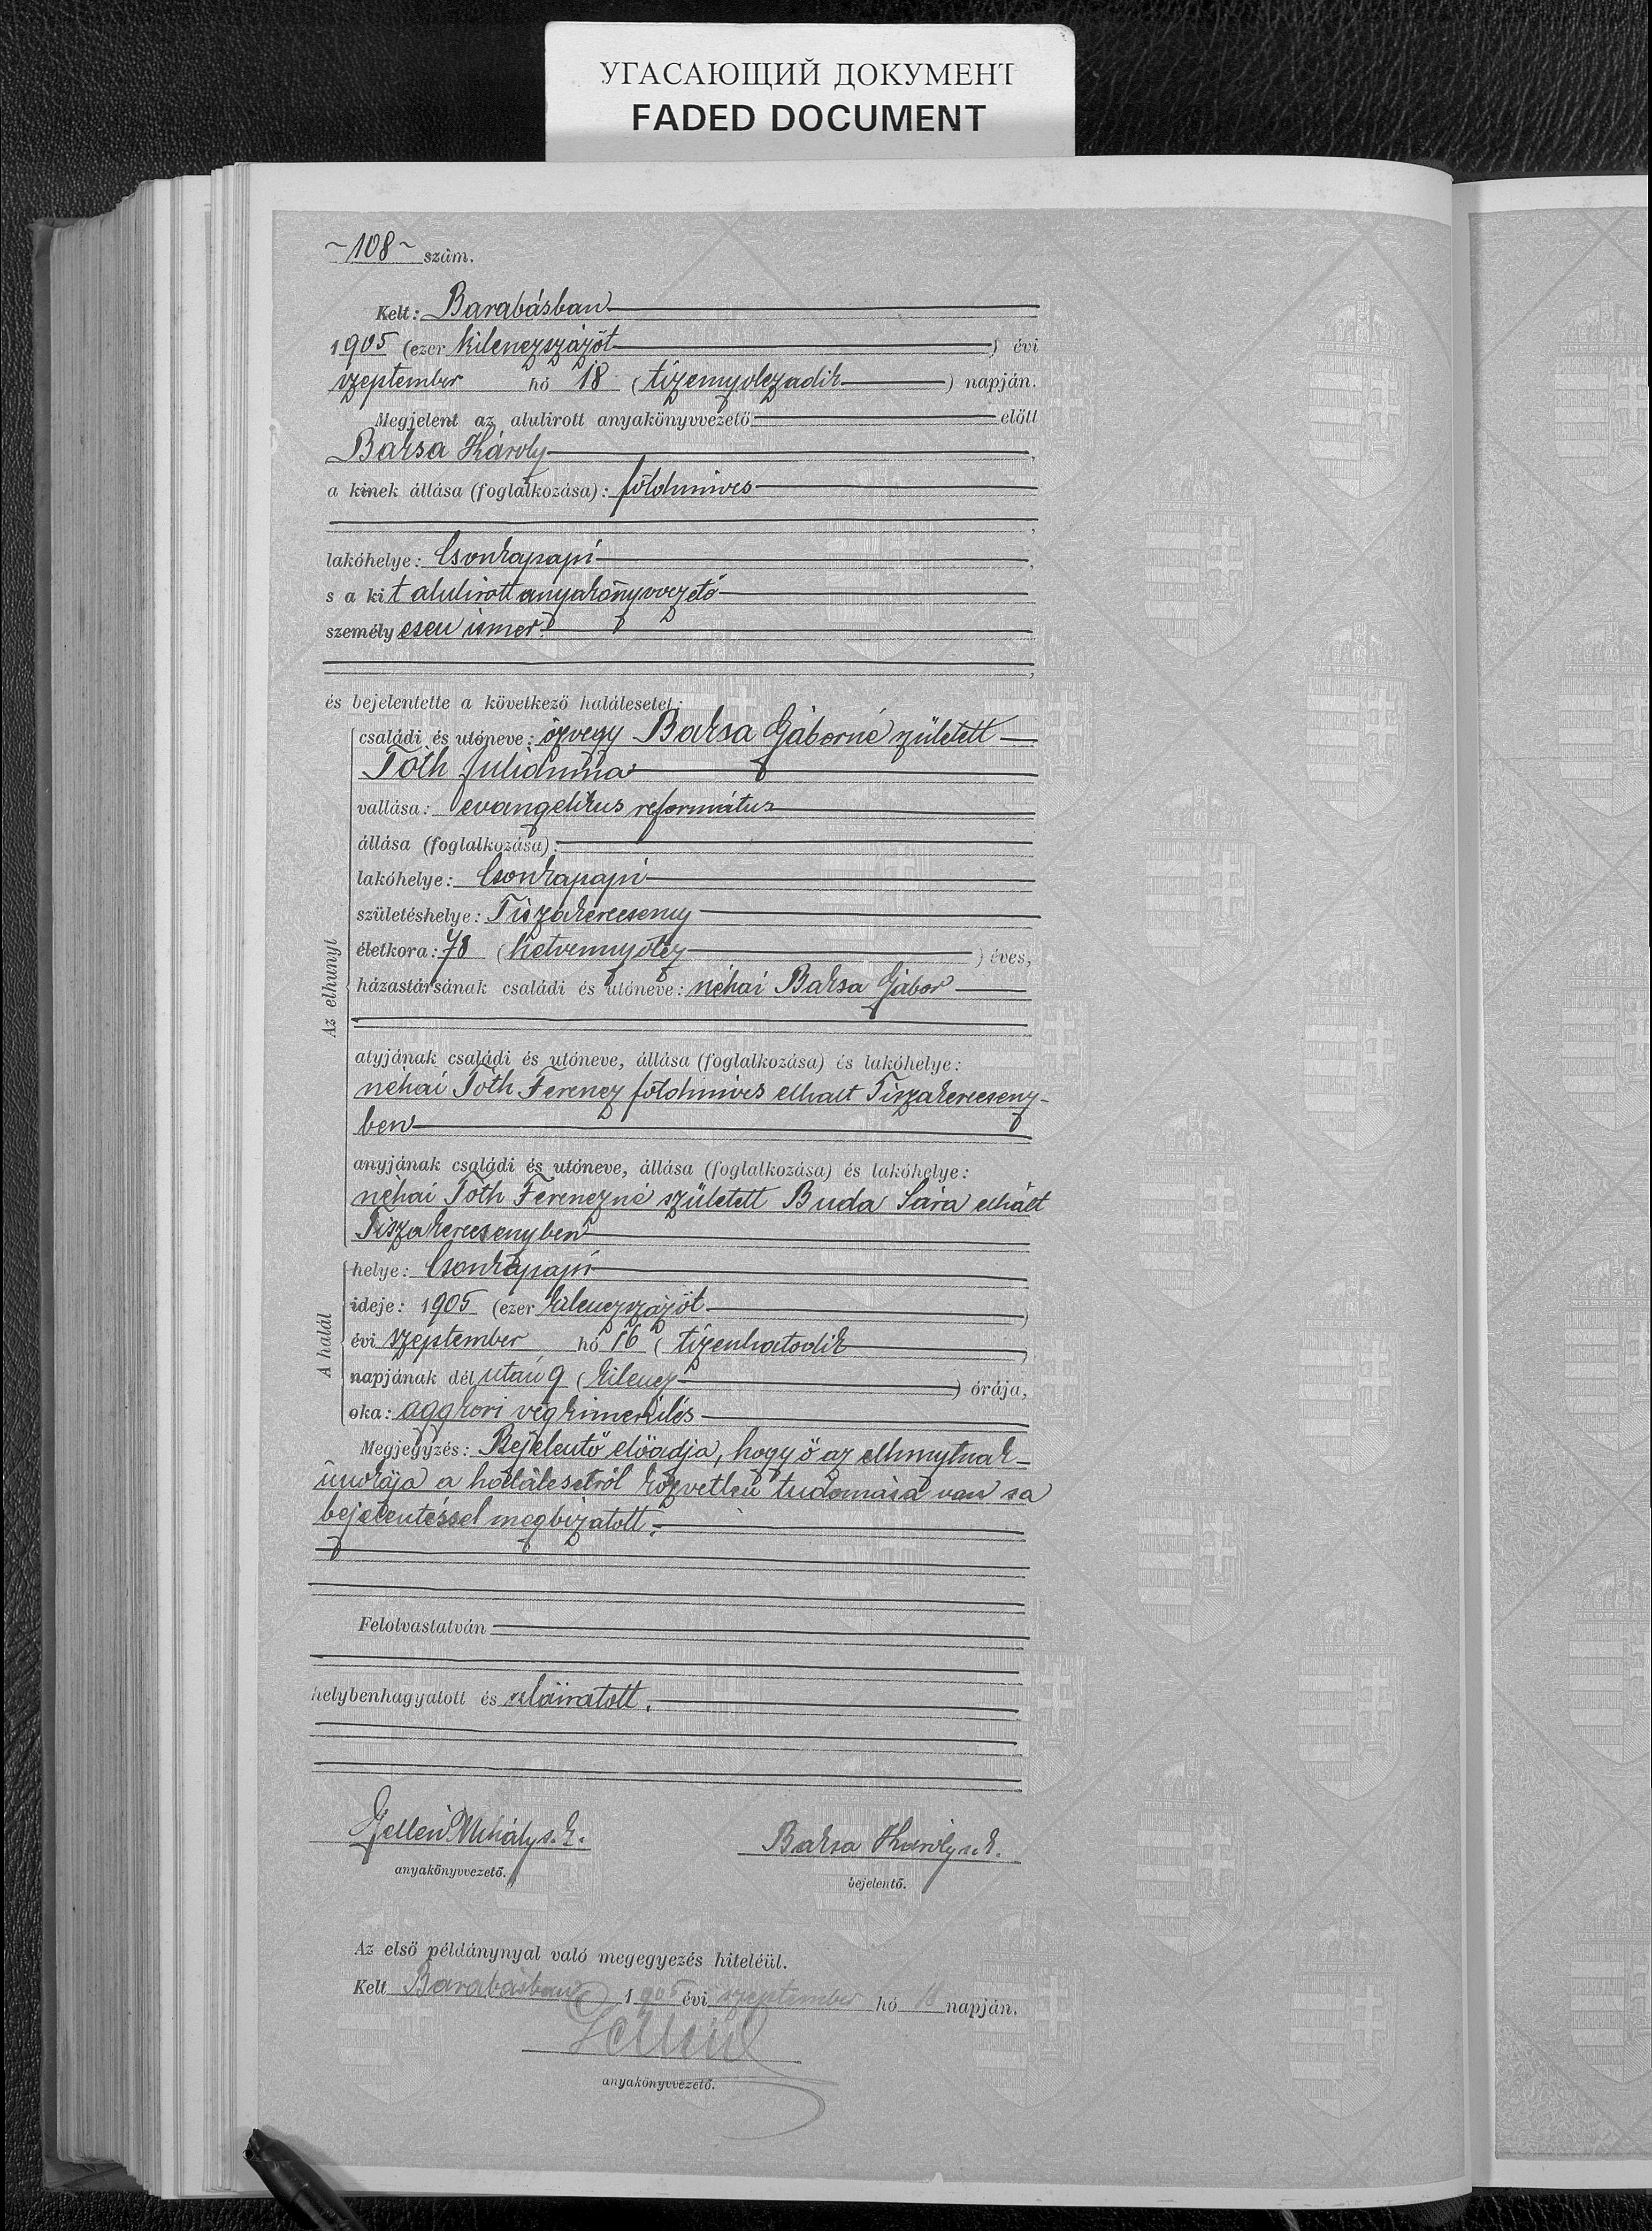 УГАСАЮЩИЙ ДОКУМЕНТ
FADED DOCUMENT
~108~ szám.
Kelt: Barabásban
1905 (ezer kilenczszázöt) évi
szeptember hó 18 (tizennyolczadik) napján.
Megjelent az alulirott anyakönyvvezető előtt
Baksa Károly,
a kinek állása (foglalkozása): földmives
,
lakóhelye: Csonkapapi,
s a kit alulirott anyakönyvvezető
személyesen ismer.
,
és bejelentette a következő halálesetet:
Az elhunyt
családi és utóneve: özvegy Baksa Gáborné született
Tóth Juliánna
vallása: evangelikus református
állása (foglalkozása):
lakóhelye: Csonkapapi
születéshelye: Tiszakerecseny
életkora: 78 (hetvennyolcz) éves,
házastársának családi és utóneve: néhai Baksa Gábor
atyjának családi és utóneve, állása (foglalkozása) és lakóhelye:
néhai Tóth Ferencz földmives elhalt Tiszakerecseny-
ben
anyjának családi és utóneve, állása (foglalkozása) és lakóhelye:
néhai Tóth Ferenczné született Buda Sára elhalt
Tiszakerecsenyben
A halál
helye: Csonkapapi
ideje: 1905 (ezer kilenczszázöt)
évi szeptember hó 16 (tizenhatodik)
napjának dél után 9 (kilencz) órája,
oka: aggkori végkimerülés
Megjegyzés: Bejelentő előadja, hogy ő az elhunytnak
unokája a halálesetről közvetlen tudomása van s a
bejelentéssel megbizatott.
Felolvastatván
helybenhagyatott és aláiratott.
Gellén Mihály s. k.
anyakönyvvezető.
Baksa Károly s. k.
bejelentő.
Az első példánynyal való megegyezés hiteléül.
Kelt Barabásban 1905 évi szeptember hó 18 napján.
Gellén
anyakönyvvezető.